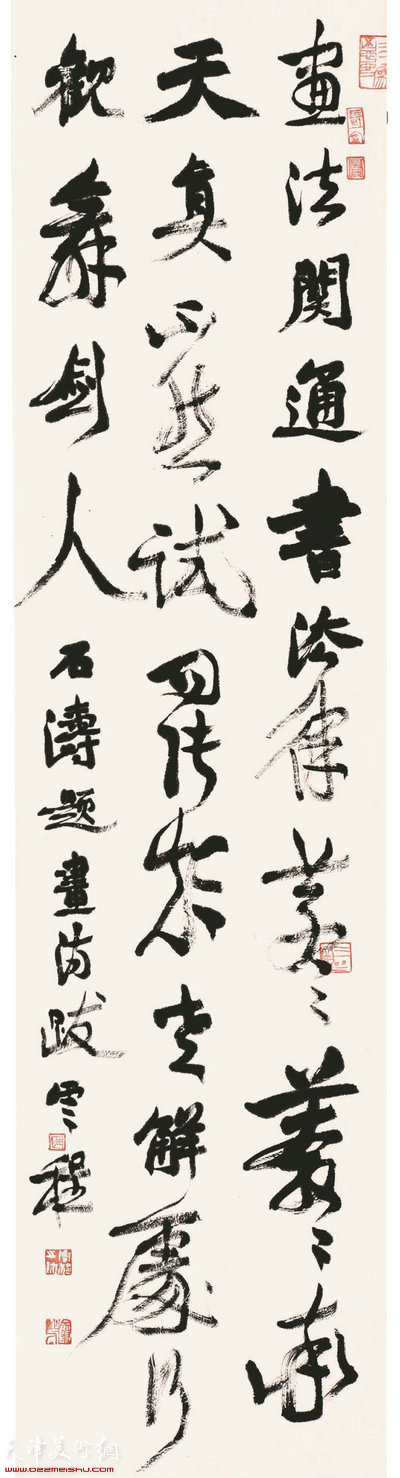 畫法関通書法律蒼〻莽〻率
天真不然試問張顛老解處何
觀舞劍人
石濤題畫詩跋 程
天津美術網
www.022meishu.com